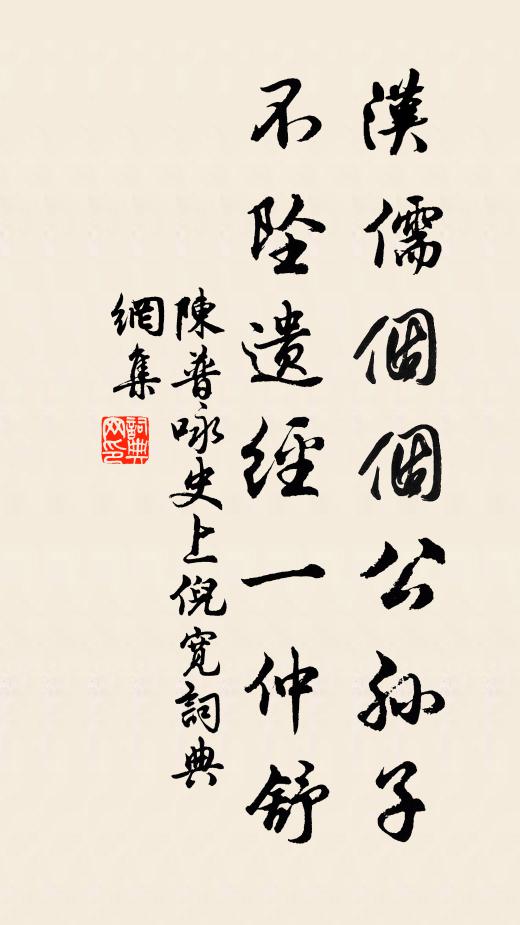 漢儒個個公孫子
不墜遺經一仲舒
陳普咏史上倪寬詞典
網集
詞典
网印